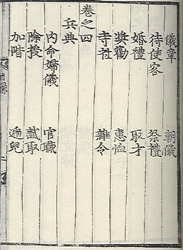 儀章 朝儀
待使客 祭禮
婚禮 取才
獎勸 惠恤
寺社 雜令
卷之四
兵典
內命婦儀 官職
除授 試取
加階 遞兒